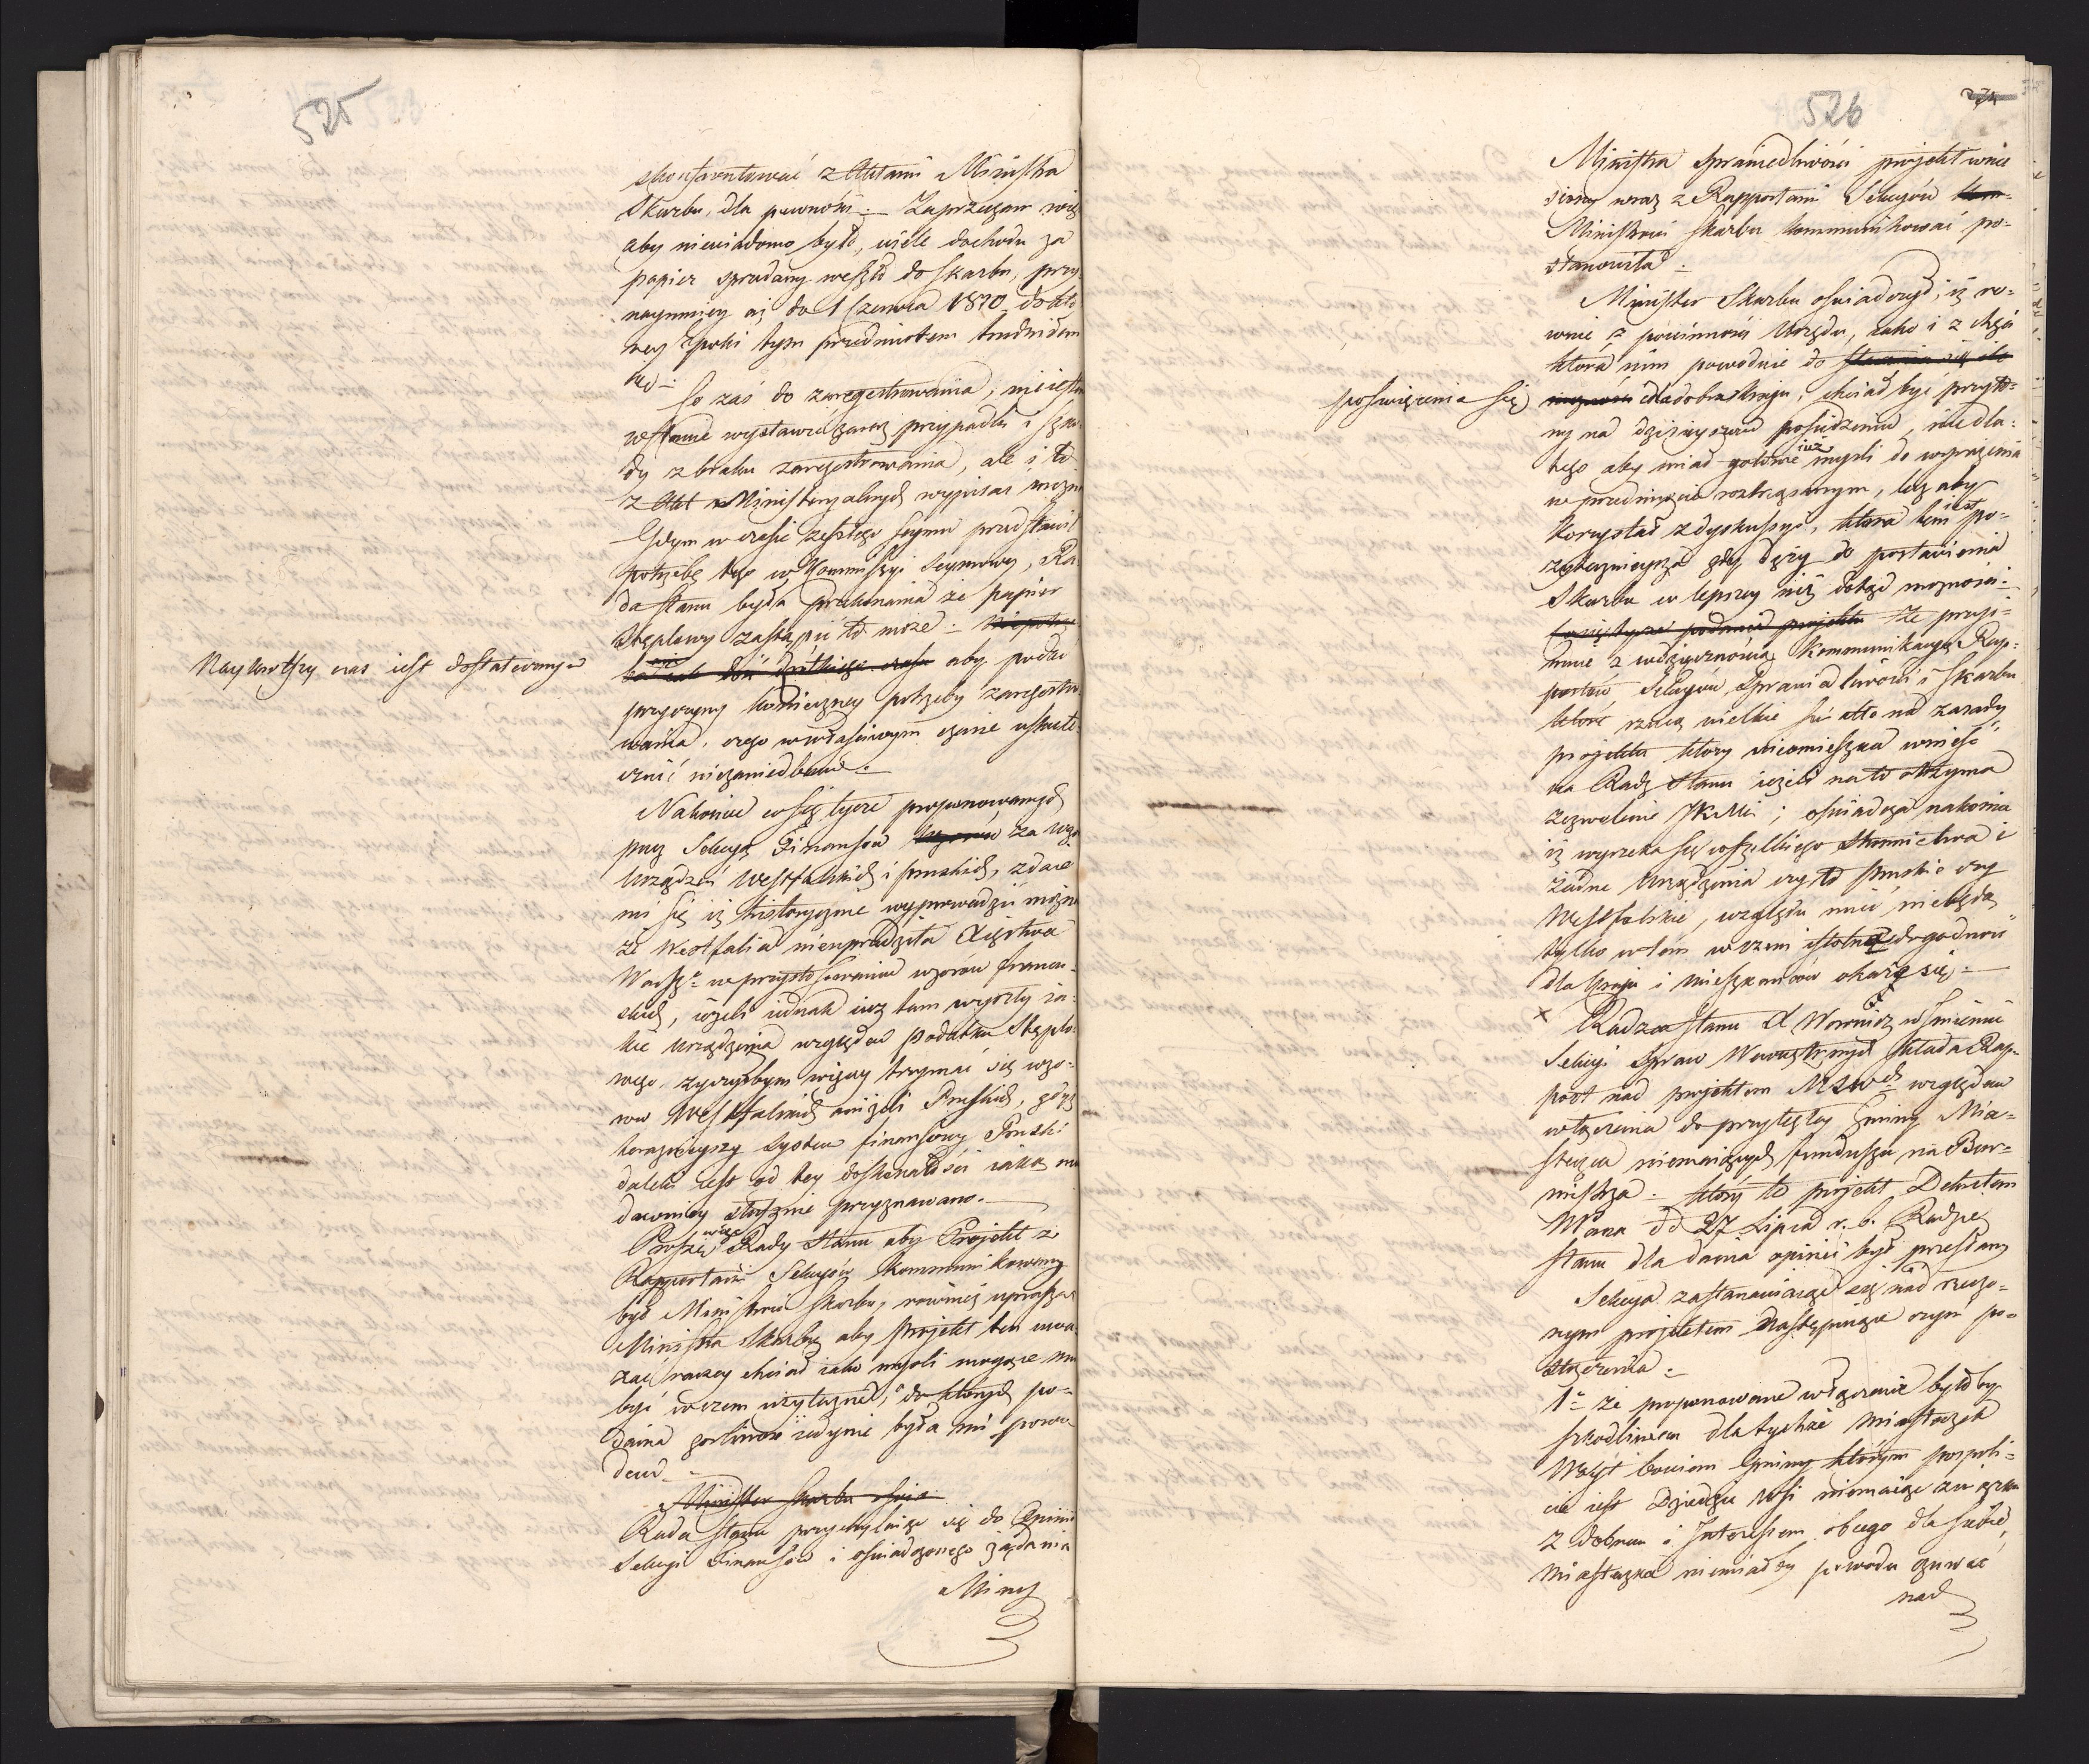 525
skonfrontować z Aktami Ministra
Skarbu, dla pewnósci. – Zaprzeczam więc
aby niewiadomo było, wiele dochodu za
papier sprzedany weszło do skarbu, przy
naymniey aż do 1 Czerwca 1810 do któ
rey Epoki tym przedmiotem trudniłem
się. –
Co zaś do zaregestrowania, nie iestem
w stanie wystawić zaraz przypadki i szko
dy z braku zaregestrowania, ale i to
z Akt Ministeryalnych wypisać można
Gdym w czasie zeszłego Seymu przedstawił
potrzebę tego w Kommissyi Seymowey, Ra
da Stanu była przekonana że papier
stęplowy zastąpić to może. –
Naykrótszy czas iest dostateczny
aby podać
przyczyny konieczney potrzeby zaregestro
wania, czego w właściwym czasie uskute
cznić niezaniedbam. –
Nakoniec co się tycze proponowanych
przez Sekcyą Finansów za wzór
Urządzeń Westfalskich i pruskich, zdaie
mi się iż historycznie wyprowadzić można
że Westfalia nieuprzedziła Xięstwa
Warszo w przystosowaniu wzorów francu
skich, ieżeli iednak iuż tam wyszły ia
kie urządzenia względem podatku Stęplo
wego, życzyłbym więcey trzymać się wzo
rów Westfalskich aniżeli Pruskich, gdyż
teraznieyszy System finansowy Pruski
daleki iest od tey doskonałości iaką mu
dawniey słusznie przyznawano. –
Proszę więc Rady Stanu aby Projekt z
Rapportami Sekcyów kommunikowany
był Ministrowi Skarbu, równiez upraszam
Ministra Skarbu aby projekt ten uwa
żać raczey chciał iako myśli mogące mu
być w czem użyteczne, do których po=
dania gorliwość iedynie była mi powo
dem. –
Minister Skarbu oświa
Rada Stanu przychylaiąc się do Opinii
Sekcyi Finansów i oświadczonego żądania
Minis
526
Ministra Sprawiedliwości projekt wnie
siony wraz z Rapportami Sekcyów
Ministrowi Skarbu kommunikować po=
stanowiła. –
Minister Skarbu oświadczył, iż ro=
wnie z powinności Urzędu, iako i z chęci
która nim powoduie do
poświęcenia się
dla dobra kraiu, chciał być przyto=
mny na dzisieyszem posiedzeniu, nie dla=
tego aby miał gotowe iuż myśli do wyrażenia
w przedmiocie roztrząsanym, lecz aby
korzystał z dyskussyi, która tem iest po=
żytecznieysza gdy dąży do postawienia
Skarbu w lepszey niż dotąd możności. –
Że przyi=
muie z wdzięcznością kommunikacyą Rap=
portów Sekcyów Sprawiedliwości i Skarbu
które rzucą wielkie światło na zasady
projektu który niemieszkał wnieść
na Radę Stanu ieżeli na to otrzyma
zezwolenie JKMci; oświadcza nakoniec
iż wyrzeka się wszelkiego stronnictwa i
żadne urządzenia czy to pruskie czy
Westfalskie, względu mieć niebędą
tylko w tem w czem istotnie dogodnemi
dla kraiu i mieszkańców okażą się. –
x Radzca Stanu A Woronicz w Imieniu
Sekcyi Spraw Wewnętrznych składa Rap=
port nad projektem MSWch względem
wcielenia do przyległey Gminy Mia=
steczek niemaiących funduszu na Bur=
mistrza. który to projekt Dekretem
NPana dd 27 Lipca r. b. Radzie
Stanu dla dania opinii był przesłany
Sekcya zastanawiaiąc się nad rzeczo=
nym projektem następuiące czyni po=
strzeżenia. –
1o że proponowane włączenie byłoby
szkodliwem dla tychże miasteczek
Wóyt bowiem Gminy którym pospoli=
cie iest Dziedzic Wsi niemaiąc związku
z dobrem i Interessem obcego dla siebie
Miasteczka niemiałby powodu czuwać
nad